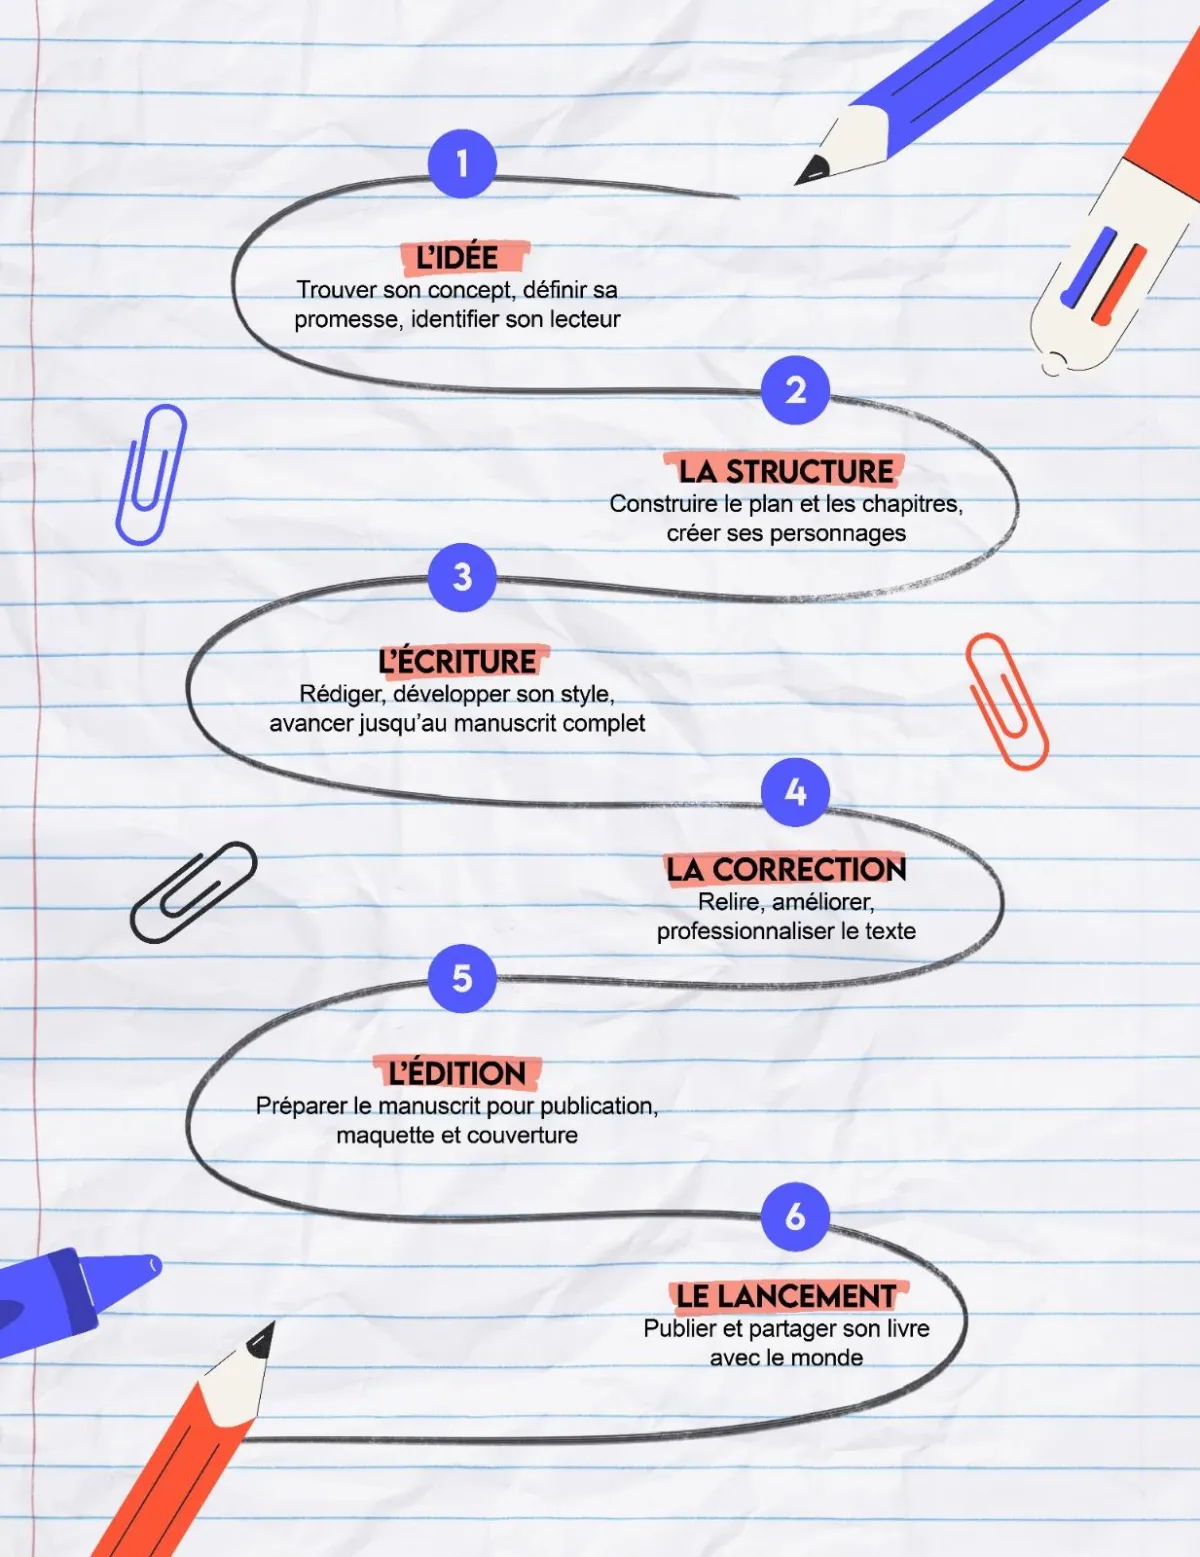 1
L'IDÉE
Trouver son concept, définir sa
promesse, identifier son lecteur
2
LA STRUCTURE
Construire le plan et les chapitres,
créer ses personnages
3
L'ÉCRITURE
Rédiger, développer son style,
avancer jusqu'au manuscrit complet
4
LA CORRECTION
Relire, améliorer,
professionnaliser le texte
5
L'ÉDITION
Préparer le manuscrit pour publication,
maquette et couverture
6
LE LANCEMENT
Publier et partager son livre
avec le monde